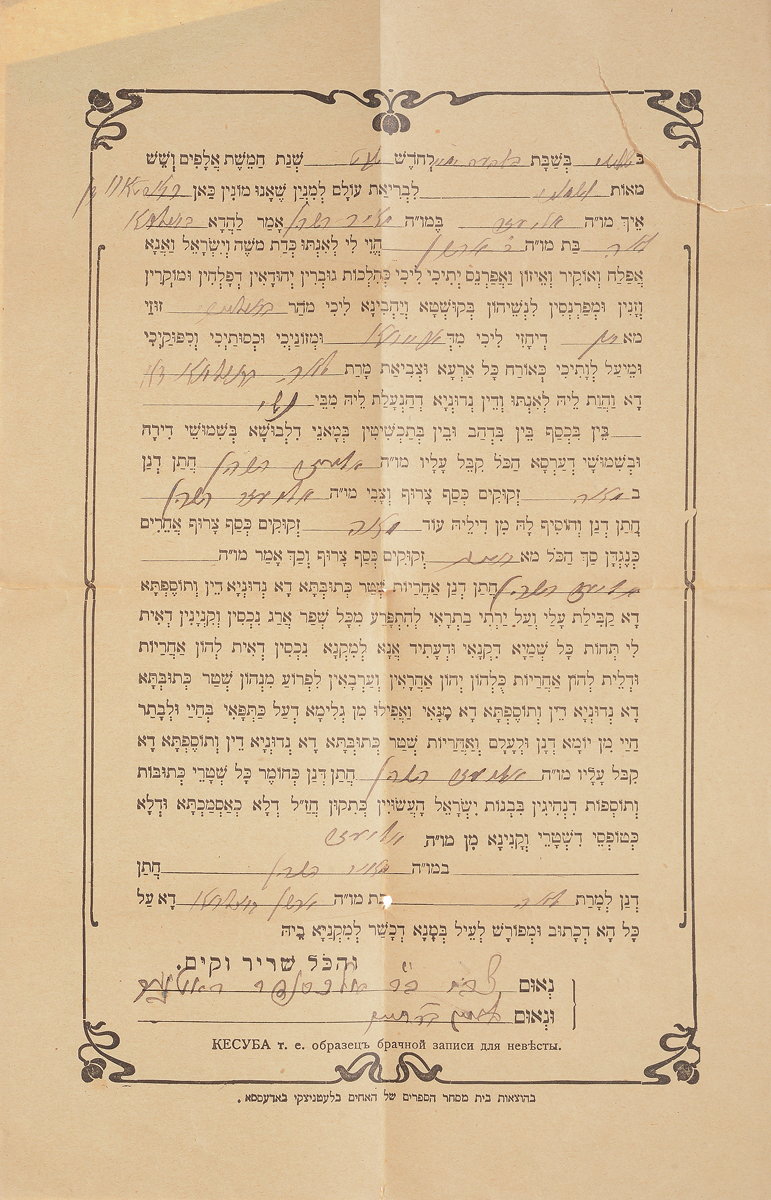 בשלישי בשבת לחדש שנת חמשת אלפים ושש
מאות לבריאת עולם למנין שאנו מונין כאן
איך מו״ה אליעזר במו״ה מאיר אמר להדא בתולתא
בת מו״ה הוי לי לאנתו כדת משה וישראל ואנא
אפלח ואוקיר ואיזון ואפרנס יתיכי ליכי כהלכות גוברין יהודאין דפלחין ומוקרין
וזנין ומפרנסין לנשיהון בקושטא ויהבינא ליכי מהר בתולייכי זוזי
מאתן דיחזי ליכי מדאורייתא ומזוניכי וכסותיכי וספוקיכי
ומיעל לותיכי כאורח כל ארעא וצביאת מרת בתולתא דא
דא והות ליה לאנתו ודין נדוניא דהנעלת ליה מבי נשי
בין בכסף בין בדהב ובין בתכשיטין במאני דלבושא בשמושי דירה
ובשמושי דערסא הכל קבל עליו מו״ה אליעזר חתן דנן
במאה זקוקים כסף צרוף וצבי מו״ה אליעזר
חתן דנן והוסיף לה מן דיליה עוד מאה זקוקים כסף צרוף אחרים
כנגדן סך הכל מאתים זקוקים כסף צרוף וכך אמר מו״ה
אליעזר חתן דנן אחריות שטר כתובתא דא נדוניא דין ותוספתא
דא קבילת עלי ועל ירתי בתראי להתפרע מכל שפר ארג נכסין וקנינין דאית
לי תחות כל שמיא דקנאי ודעתיד אנא למקנא נכסין דאית להון אחריות
ודלית להון אחריות כלהון יהון אחראין וערבאין לפרוע מנהון שטר כתובתא
דא נדוניא דין ותוספתא דא מנאי ואפילו מן גלימא דעל כתפאי בחיי ולבתר
חיי מן יומא דנן ולעלם ואחריות שטר כתובתא דא נדוניא דין ותוספתא דא
קבל עליו מו״ה אליעזר חתן דנן כחומר כל שטרי כתובות
ותוספות דנהיגין בבנות ישראל העשויין כתקון חז״ל דלא כאסמכתא ודלא
כטופסי דשטרי וקנינא מן מו״ה אליעזר
במו״ה מאיר חתן
דנן למרת בת מו״ה בתולתא דא על
כל הא דכתוב ומפורש לעיל במנא דכשר למקניא ביה
והכל שריר וקים.
נאום
ונאום
КЕСУБА т. е. образецъ брачной записи для невѣсты.
בהוצאות בית מסחר הספרים של האחים בלעטניצקי באדעססא.